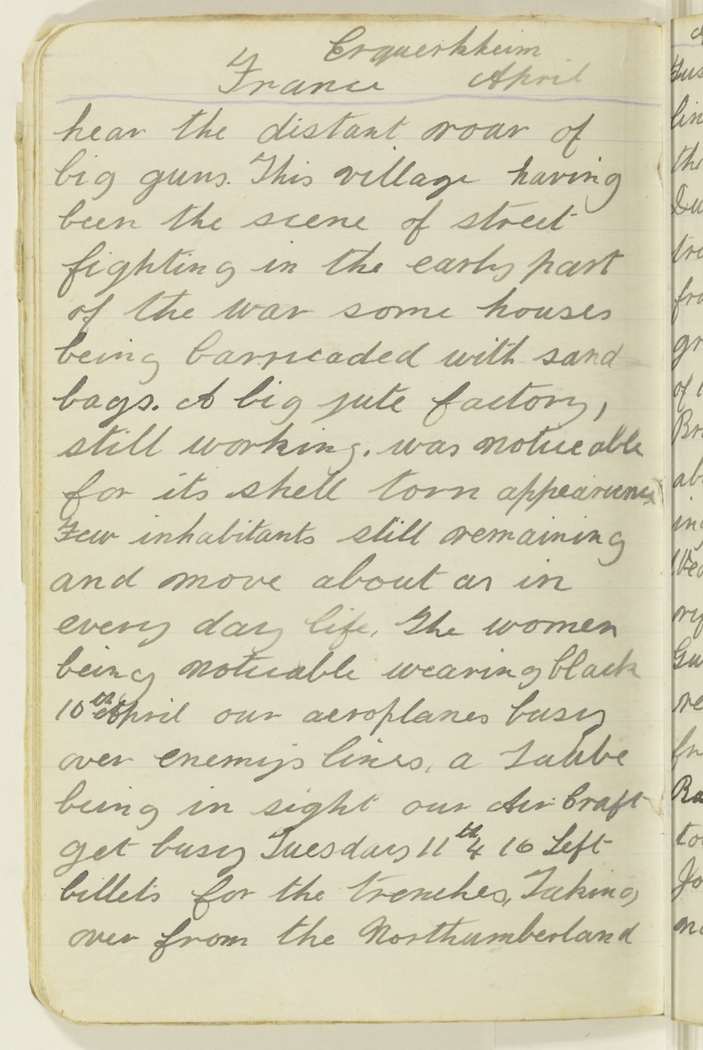 Erquerkheim
France April
hear the distant roar of
big guns. This village having
been the scene of street
fighting in the early part
of the war some houses
being barricaded with sand
bags. A big jute factory,
still working. was noticeable
for its shell torn appearance
Few inhabitants still remaining
and move about as in
every day life. The women
being noticeable wearing black
10th April our aeroplanes busy
over enemys lines, a Taube
being in sight our Air Craft
get busy Tuesdays 11th 4 16 Left
billets for the trenches, Taking
over from the Northumberland